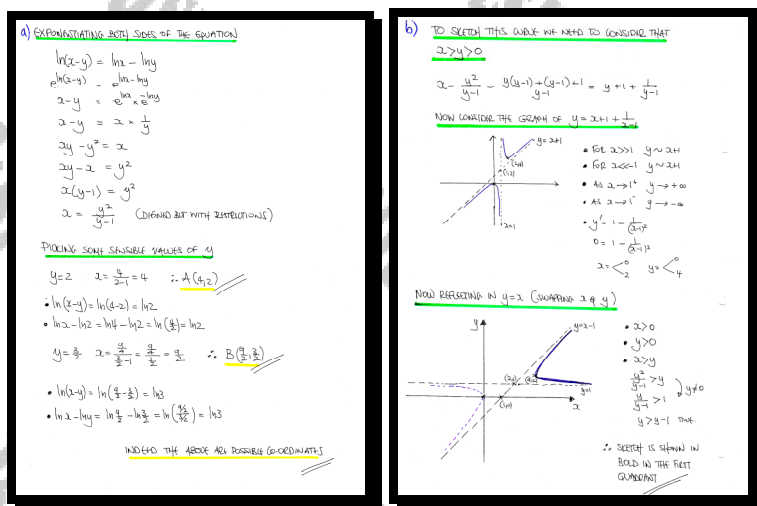 a) EXPONENTIATING BOTH SIDES OF THE EQUATION
ln(x-y) = lnx - lny
e^ln(x-y) = e^lnx-lny
x-y = e^lnx × e^-lny
x-y = x × 1/y
xy - y² = x
xy - x = y²
x(y-1) = y²
x = y²/(y-1) (DEFINED BUT WITH RESTRICTIONS)
PICKING SOME SENSIBLE VALUES OF y
y=2 x = 4/(2-1) = 4 ∴ A(4,2)
• ln(x-y) = ln(4-2) = ln2
• lnx - ln2 = ln4 - ln2 = ln(4/2) = ln2
y = 3/2 x = (9/4)/(3/2-1) = (9/4)/(1/2) = 9/2 ∴ B(9/2, 3/2)
• ln(x-y) = ln(9/2 - 3/2) = ln3
• lnx - lny = ln 9/2 - ln 3/2 = ln((9/2)/(3/2)) = ln3
INDEED THE ABOVE ARE POSSIBLE CO-ORDINATES
b) TO SKETCH THIS CURVE WE NEED TO CONSIDER THAT
x>y>0
x = y²/(y-1) = (y(y-1)+(y-1)+1)/(y-1) = y+1+1/(y-1)
NOW CONSIDER THE GRAPH OF y = x+1+1/(x-1)
y=x+1
(2,4)
(1,2)
x=1
• FOR x>>1 y~x+1
• FOR x<<-1 y~x+1
• AS x→1⁺ y→+∞
• AS x→1⁻ y→-∞
• y' = 1 - 1/(x-1)²
0 = 1 - 1/(x-1)²
x = < 0 2 y = < 0 4
NOW REFLECTING IN y=x (SWAPPING x & y)
y
y=x-1
(2,1)
(4,2)
y=1
(1,0)
x
• x>0
• y>0
• x>y
y²/(y-1) > y
y/(y-1) > 1 ) y≠0
y > y-1 TRUE
∴ SKETCH IS SHOWN IN
BOLD IN THE FIRST
QUADRANT